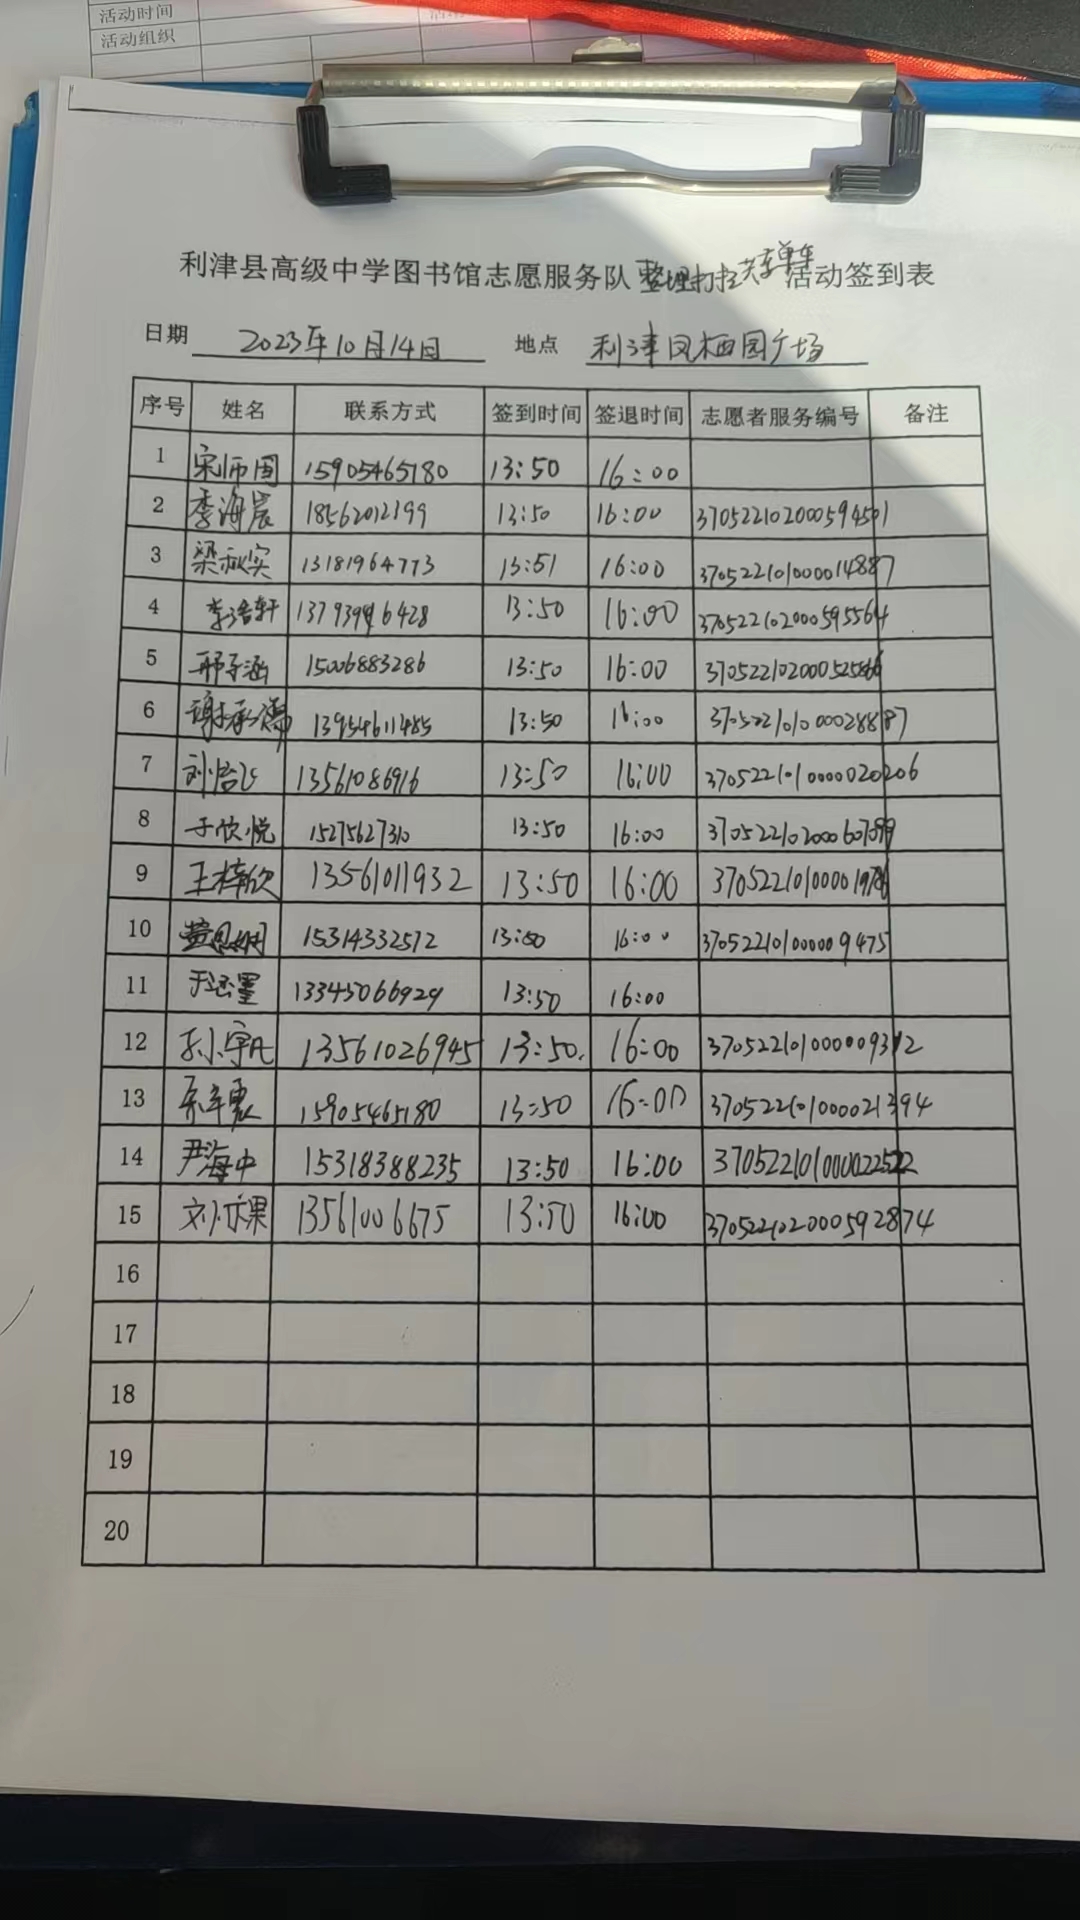 活动时间
活动组织
利津县高级中学图书馆志愿服务队 整理打扫共享单车 活动签到表
日期 2023年10月14日 地点 利津凤栖园广场
序号 姓名 联系方式 签到时间 签退时间 志愿者服务编号 备注
1 宋师国 15905465180 13:50 16:00
2 李海晨 18562012199 13:50 16:00 370522102000594501
3 梁秋实 13181964773 13:51 16:00 3705221010000014887
4 李浩轩 13:50 16:00 370522102000595564
5 邢子涵 15006883286 13:50 16:00
6 13954611485 13:50 16:00
7 刘怡飞 13561086916 13:50 16:00 3705221010000020206
8 于欣悦 15275627310 13:50 16:00
9 王梓欣 13561011932 13:50 16:00
10 15314332572 13:50 16:00 3705221010000009475
11 于丞墨 13345066929 13:50 16:00
12 孙小宇凡 13561026945 13:50. 16:00
13 15905465180 13:50 16:00 370522101000021394
14 尹海中 15318388235 13:50 16:00
15 13561006675 13:50 16:00 3705221020000592874
16
17
18
19
20